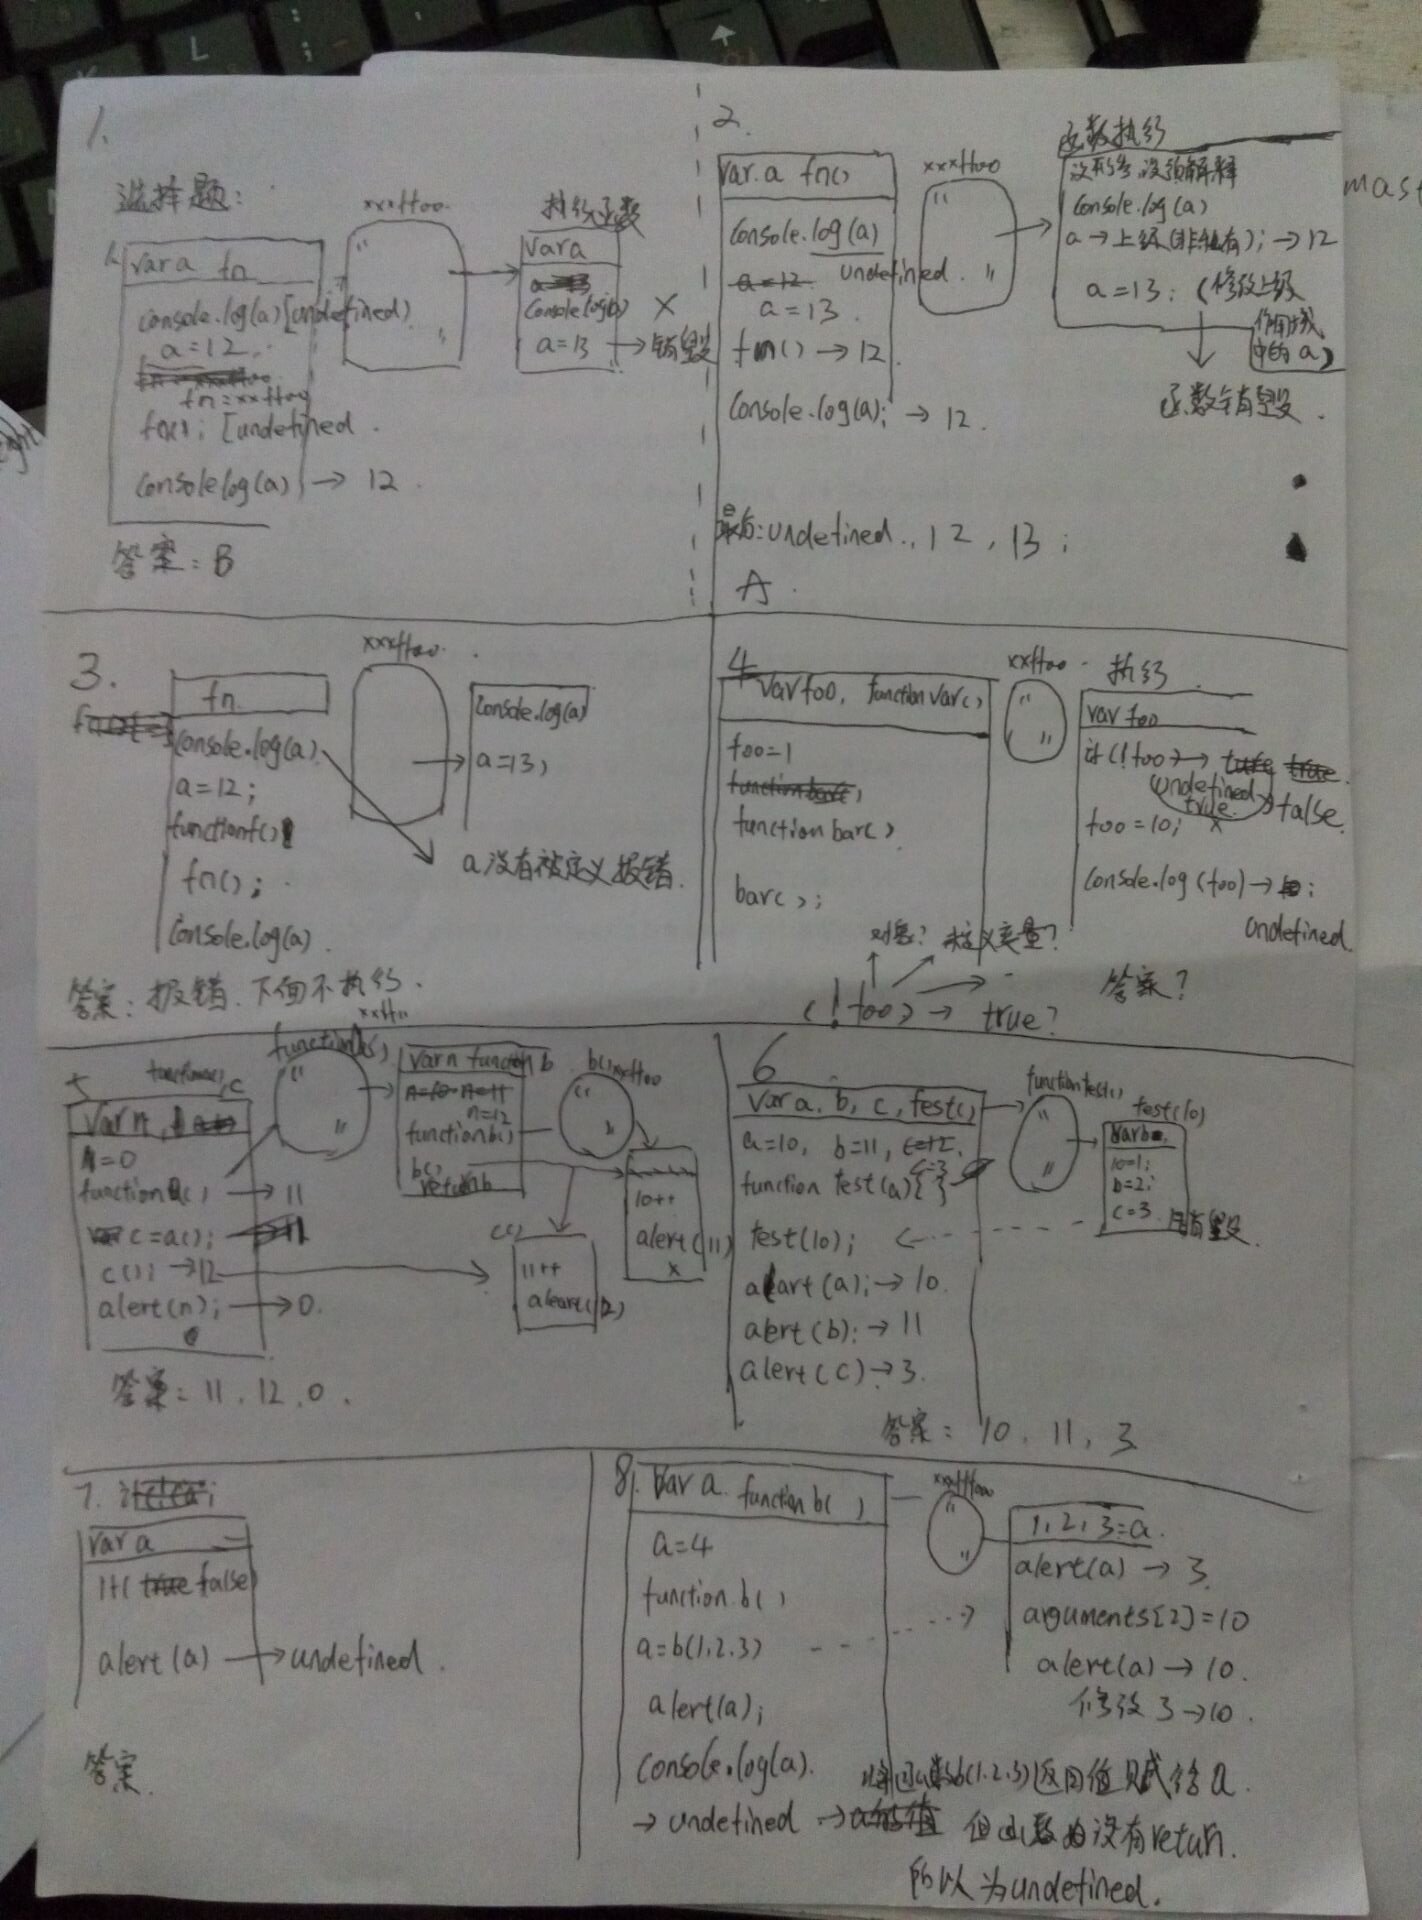 1.
选择题:
xxxff00
执行函数
var a fn
console.log(a)[undefined]
a=12
fn=xxff00
fn(); [undefined
console.log(a) → 12
var a
console.log(a) ×
a=13 → 销毁
答案: B
2.
var a fn()
console.log(a)
undefined
a=12
a=13
fn() → 12
console.log(a); → 12
xxxff00
函数执行
没形参 没预解释
console.log(a)
a → 上级(非私有); → 12
a=13; (修改上级
作用域
中的 a)
函数销毁
undefined, 12, 13;
A
3.
xxxff00
fn
console.log(a)
a=12;
fn();
console.log(a)
console.log(a)
a=13;
a没有被定义报错
答案: 报错, 下面不执行.
4
var foo, function var()
foo=1
function bar()
bar();
xxff00
执行
var foo
if (!foo) → true
undefined
true → false
foo=10; ×
console.log(foo) →
undefined
对象? 未定义变量?
(!foo) → true?
答案?
5
var n
n=0
→ 11
c=a();
c() → 12
alert(n); → 0
var n function b
n=10 n=11
n=12
function b()
b()
return b
b() xxff00
10++
alert(11)
×
c()
11++
aleart(12)
答案: 11, 12, 0.
6
var a, b, c, test()
a=10, b=11, c=12,
function test(a){ c=3 }
test(10);
alart(a); → 10
alert(b): → 11
alert(c) → 3.
function test()
test(10)
var b
10=1;
b=2;
c=3 销毁
答案: 10, 11, 3
7.
var a
false
alert(a) → undefined.
答案
8.
var a function b( )
a=4
function b()
a=b(1,2,3)
alert(a);
console.log(a).
→ undefined → a的值
xxxff00
1, 2, 3=a
alert(a) → 3
arguments[2]=10
alert(a) → 10.
修改 3 → 10.
将函数b(1,2,3)返回值赋给a
但函数 没有return.
所以为undefined.